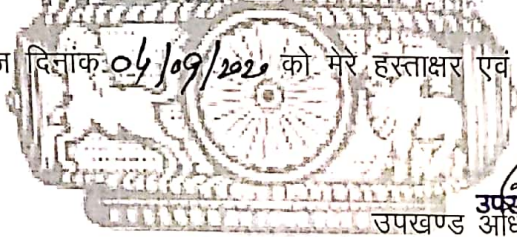 दिनांक 04/09/2020 को मेरे हस्ताक्षर एवं
उपखण्ड